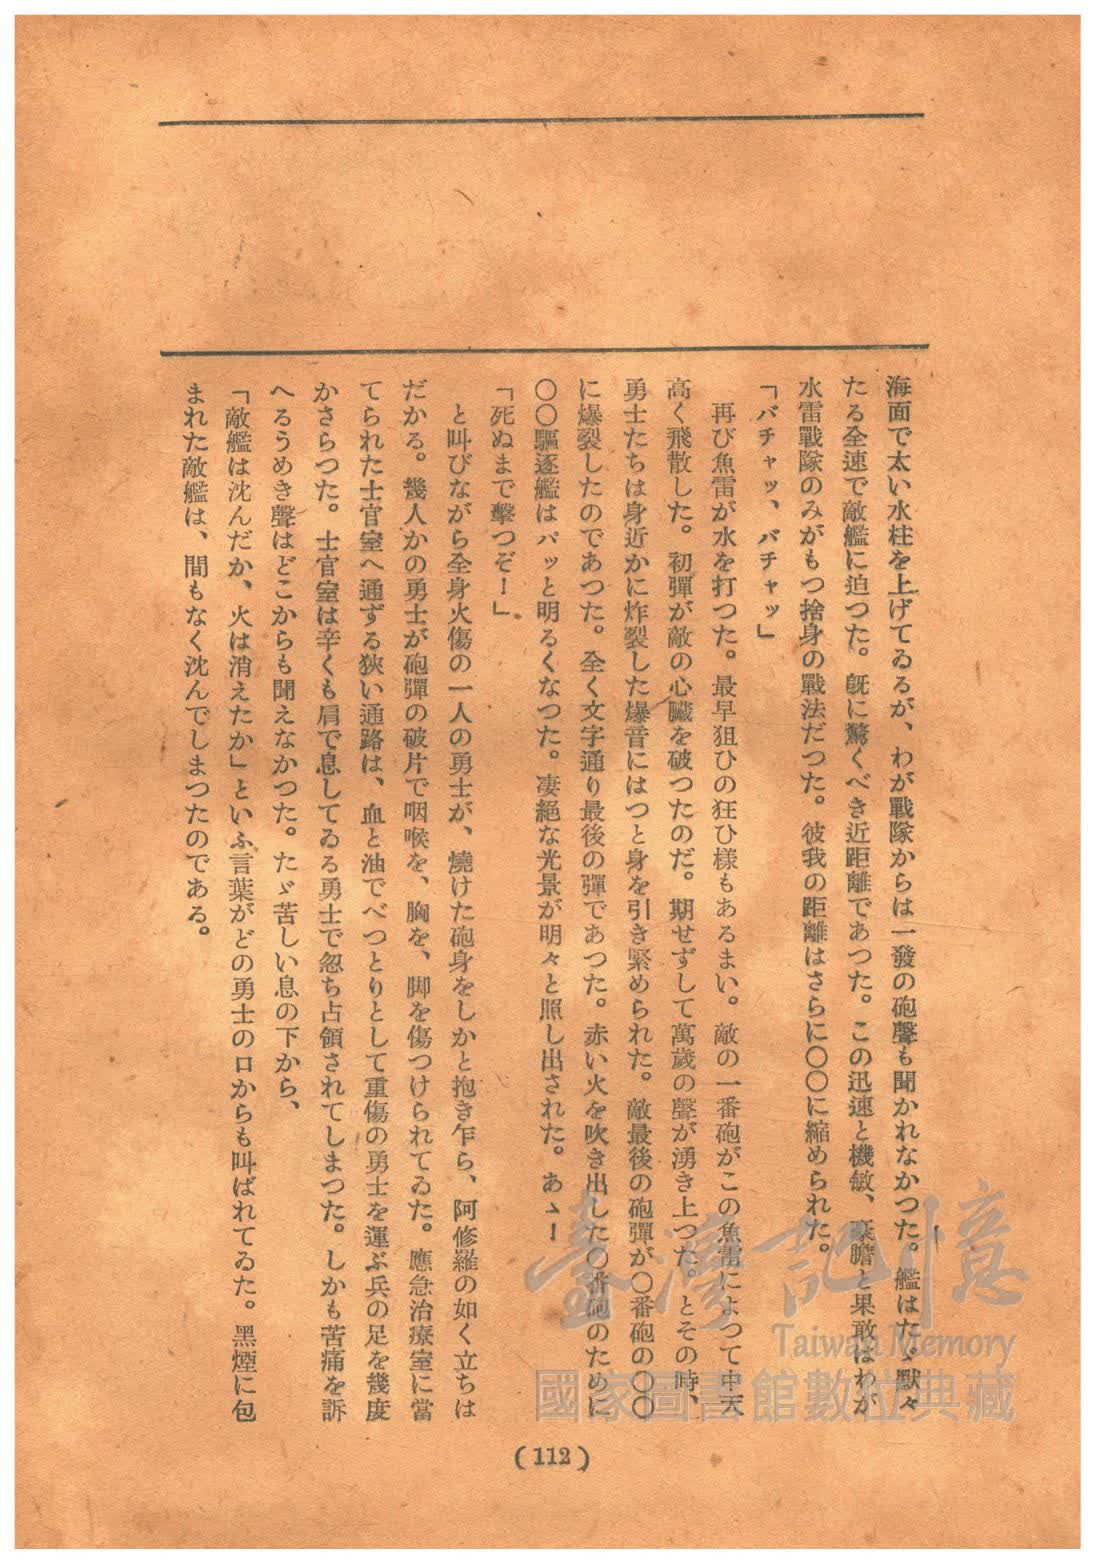 海面で太い水柱を上げてゐるが、わが戰隊からは一發の砲聲も聞かれなかつた。艦はたゞ默々
たる全速で敵艦に迫つた。旣に驚くべき近距離であつた。この迅速と機敏、豪膽と果敢はわが
水雷戰隊のみがもつ捨身の戰法だつた。彼我の距離はさらに〇〇に縮められた。
「バチャッ、バチャッ」
再び魚雷が水を打つた。最早狙ひの狂ひ樣もあるまい。敵の一番砲がこの魚雷によつて中天
高く飛散した。初彈が敵の心臟を破つたのだ。期せずして萬歲の聲が湧き上つた。とその時、
勇士たちは身近かに炸裂した爆音にはつと身を引き緊められた。敵最後の砲彈が〇番砲の〇〇
に爆裂したのであつた。全く文字通り最後の彈であつた。赤い火を吹き出した〇番砲のために
〇〇驅逐艦はパッと明るくなつた。凄絕な光景が明々と照し出された。あゝー
「死ぬまで擊つぞー」
と叫びながら全身火傷の一人の勇士が、燒けた砲身をしかと抱き乍ら、阿修羅の如く立ちは
だかる。幾人かの勇士が砲彈の破片で咽喉を、胸を、脚を傷つけられてゐた。應急治療室に當
てられた士官室へ通ずる狹い通路は、血と油でべつとりとして重傷の勇士を運ぶ兵の足を幾度
かさらつた。士官室は辛くも肩で息してゐる勇士で忽ち占領されてしまつた。しかも苦痛を訴
へるうめき聲はどこからも聞えなかつた。たゞ苦しい息の下から、
「敵艦は沈んだか、火は消えたか」といふ言葉がどの勇士の口からも叫ばれてゐた。黑煙に包
まれた敵艦は、間もなく沈んでしまつたのである。
(112)
臺灣記憶
Taiwan Memory
國家圖書館數位典藏